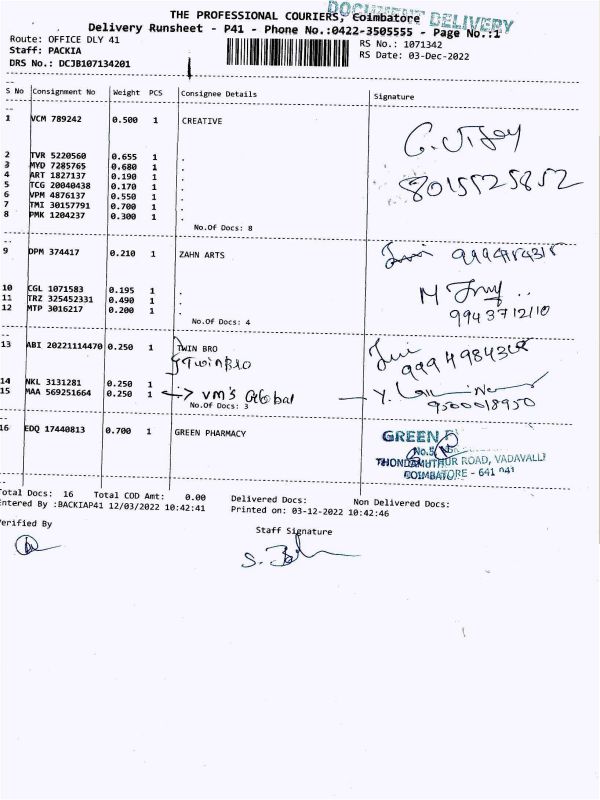 DOCUMENT DELIVERY
THE PROFESSIONAL COURIERS, Coimbatore
Delivery Runsheet - P41 - Phone No.:0422-3505555 - Page No.:1
Route: OFFICE DLY 41 RS No.: 1071342
Staff: PACKIA RS Date: 03-Dec-2022
DRS No.: DCJB107134201
S No Consignment No Weight PCS Consignee Details Signature
1 VCM 789242 0.500 1 CREATIVE
G. Vijay
2 TVR 5220560 0.655 1 .
3 MYD 7285765 0.680 1 .
4 ART 1827137 0.190 1 .
8015525852
5 TCG 20040438 0.170 1 .
6 VPM 4876137 0.550 1 .
7 TMI 30157791 0.700 1 .
8 PMK 1204237 0.300 1 .
No.Of Docs: 8
9 DPM 374417 0.210 1 ZAHN ARTS
10 CGL 1071583 0.195 1 .
11 TRZ 325452331 0.490 1 .
12 MTP 3016217 0.200 1 .
9943712110
No.Of Docs: 4
13 ABI 20221114470 0.250 1 TWIN BRO
TwinBro
14 NKL 3131281 0.250 1
15 MAA 569251664 0.250 1 VM's Global
No.Of Docs: 3
9500018950
16 EDQ 17440813 0.700 1 GREEN PHARMACY
GREEN
No.5
THONDAMUTHUR ROAD, VADAVALLI
COIMBATORE - 641 041
Total Docs: 16 Total COD Amt: 0.00 Delivered Docs: Non Delivered Docs:
Entered By :BACKIAP41 12/03/2022 10:42:41 Printed on: 03-12-2022 10:42:46
Verified By Staff Signature